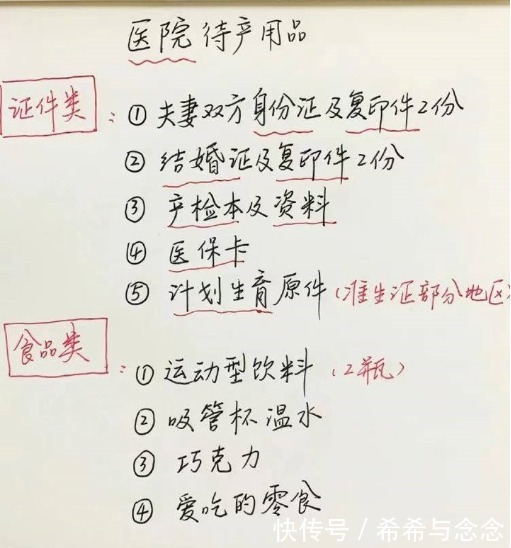 医院待产用品
证件类：①夫妻双方身份证及复印件2份
②结婚证及复印件2份
③产检本及资料
④医保卡
⑤计划生育原件（准生证部分地区）
食品类：①运动型饮料（2瓶）
②吸管杯温水
③巧克力
④爱吃的零食
快传号／希希与念念